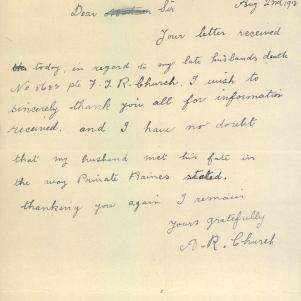 Aug 2nd, 191
Dear Sir
Your letter received
today, in regard to my late husbands death
No 5683 pte F. J. R. Church, I wish to
sincerely thank you all for information
received. and I have no doubt
that my husband met his fate in
the way Private Baines stated.
thanking you again I remain
Yours gratefully
A. R. Church